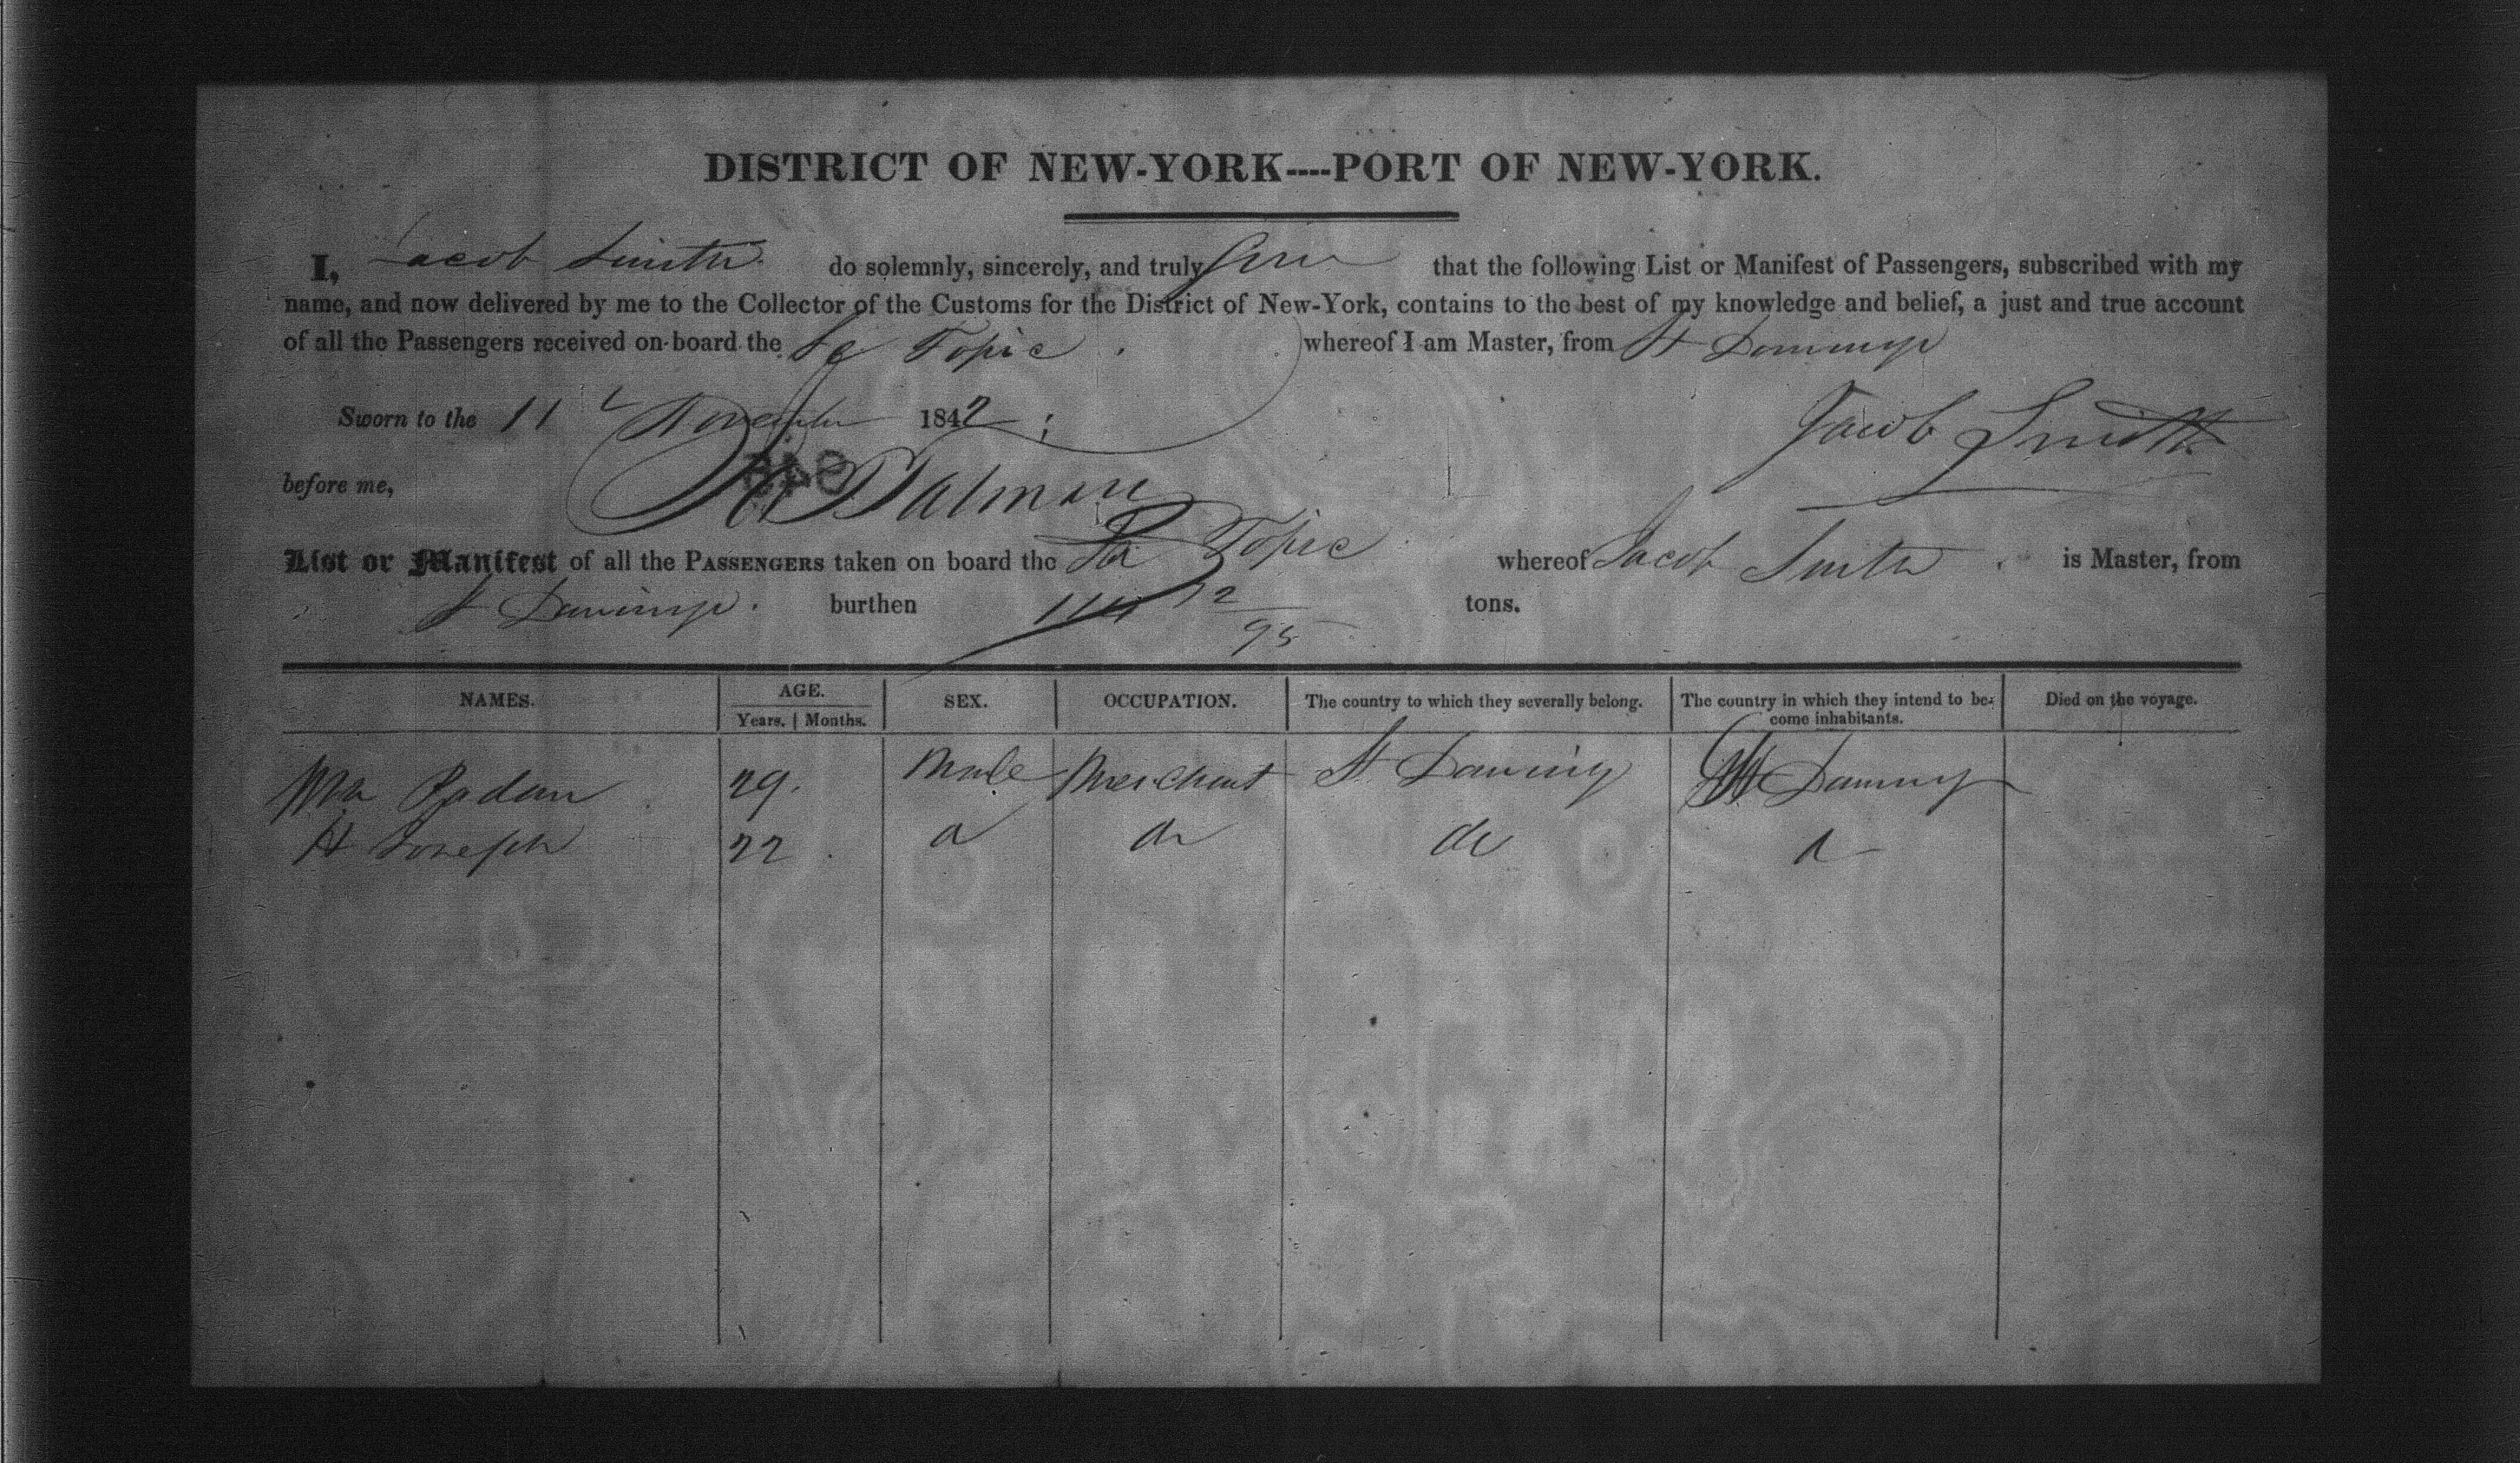 DISTRICT OF NEW-YORK----PORT OF NEW-YORK.
I, Jacob Smith do solemnly, sincerely, and truly that the following List or Manifest of Passengers, subscribed with my
name, and now delivered by me to the Collector of the Customs for the District of New-York, contains to the best of my knowledge and belief, a just and true account
of all the Passengers received on-board the Topic whereof I am Master, from St Domingo
Sworn to the 11 November 1842
Jacob Smith
before me,
List or Manifest of all the PASSENGERS taken on board the Topic whereof Jacob Smith is Master, from
St Domingo. burthen 12/95 tons.
NAMES. AGE. SEX. OCCUPATION. The country to which they severally belong. The country in which they intend to be- Died on the voyage.
Years. Months. come inhabitants.
29. Male Merchant St Doming St Doming
H Joseph 22 do do do do